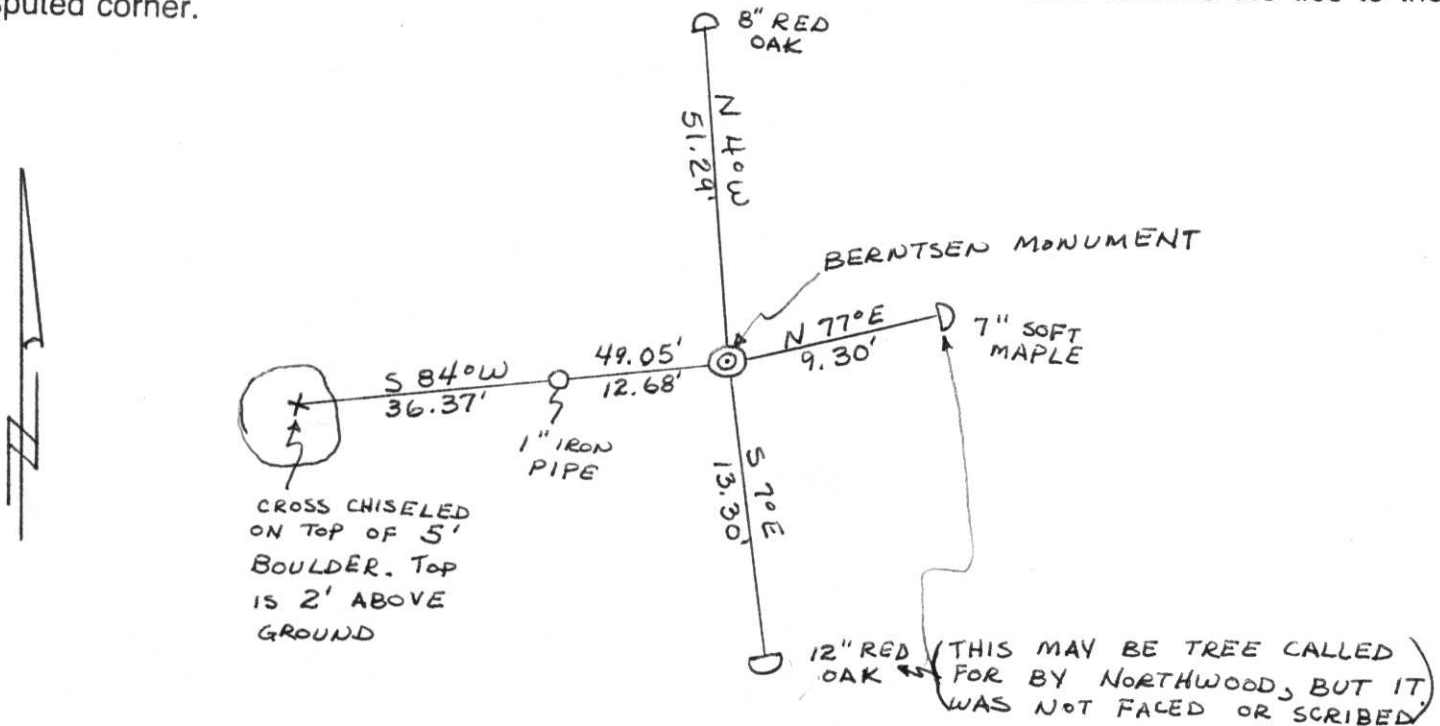 sputed corner.
8" RED
OAK
N 4°W
51.29'
BERNTSEN MONUMENT
N 77°E
9.30'
7" SOFT
MAPLE
49.05'
12.68'
S 84°W
36.37'
1" IRON
PIPE
CROSS CHISELED
ON TOP OF 5'
BOULDER. TOP
IS 2' ABOVE
GROUND
S 7°E
13.30'
12" RED
OAK
(THIS MAY BE TREE CALLED
FOR BY NORTHWOOD, BUT IT
WAS NOT FACED OR SCRIBED)